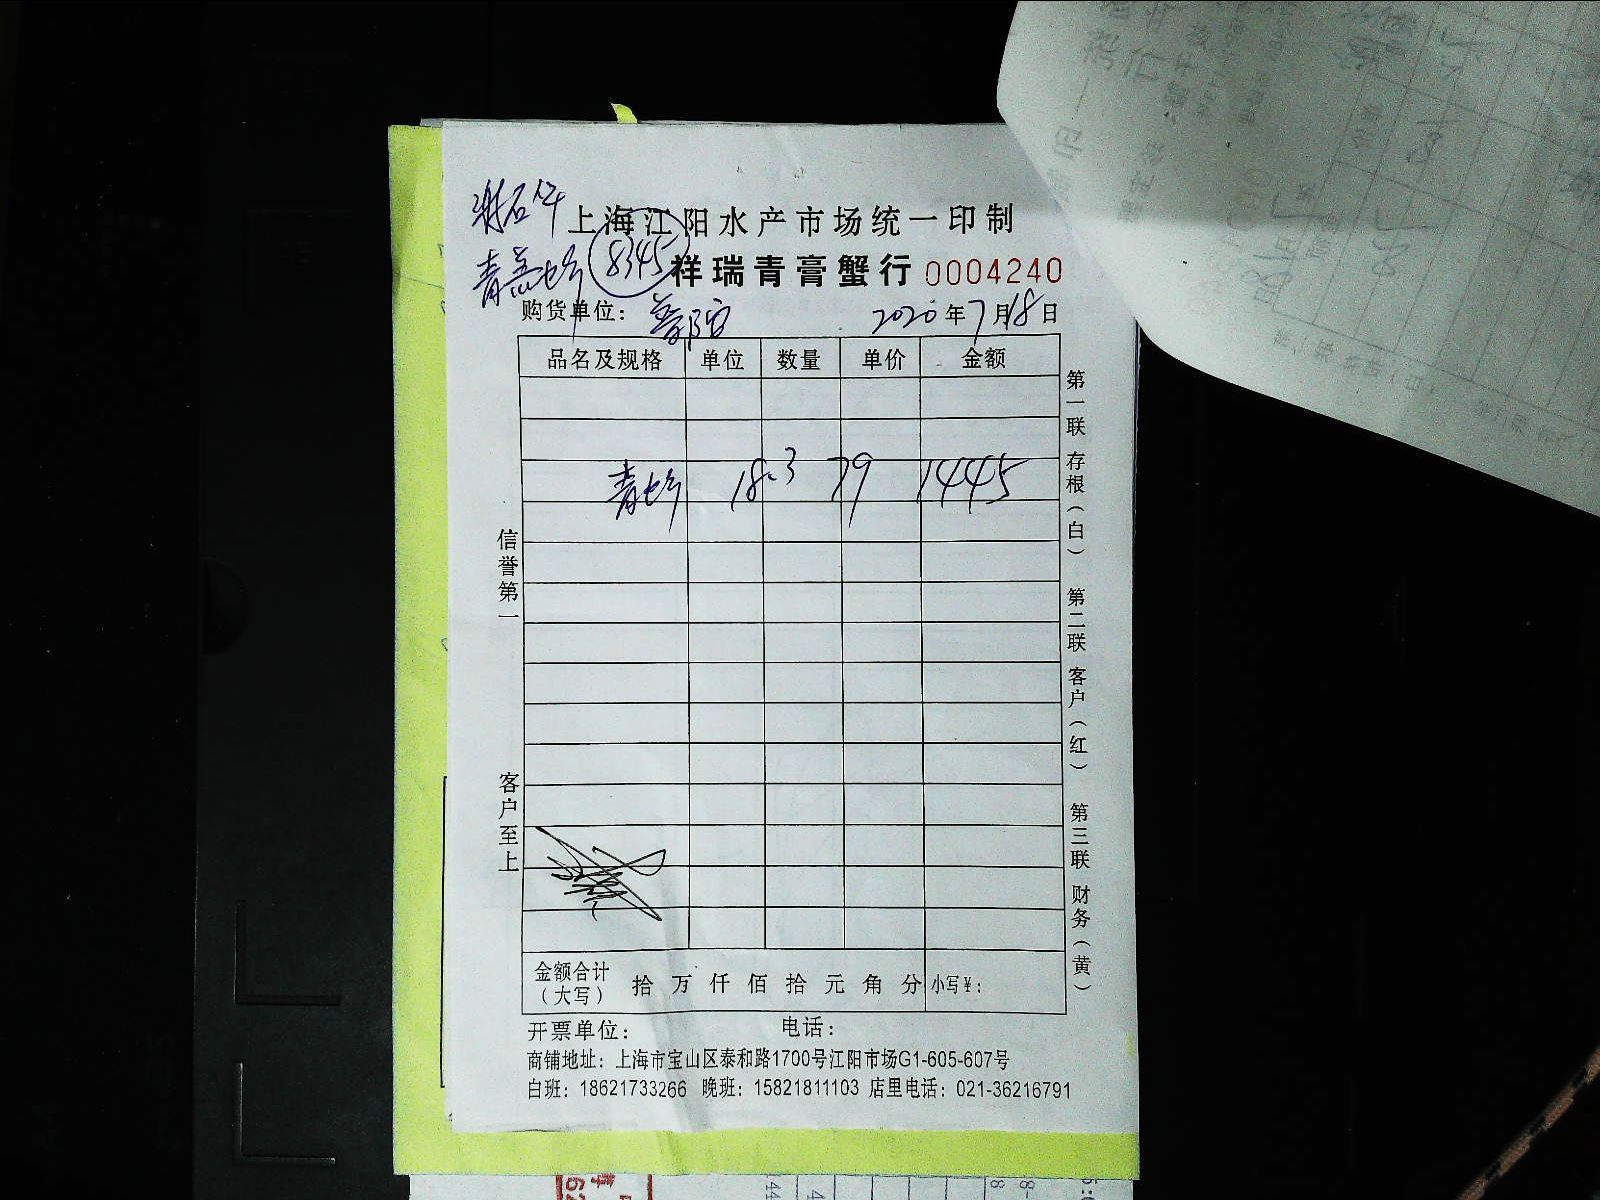 上海江阳水产市场统一印制
8345
祥瑞青膏蟹行 0004240
购货单位：
2020年7月18日
品名及规格 单位 数量 单价 金额
青 18.3 79 1445
信誉第一
客户至上
第一联 存根（白） 第二联 客户（红） 第三联 财务（黄）
金额合计（大写） 拾 万 仟 佰 拾 元 角 分 小写¥：
开票单位： 电话：
商铺地址：上海市宝山区泰和路1700号江阳市场G1-605-607号
白班：18621733266 晚班：15821811103 店里电话：021-36216791